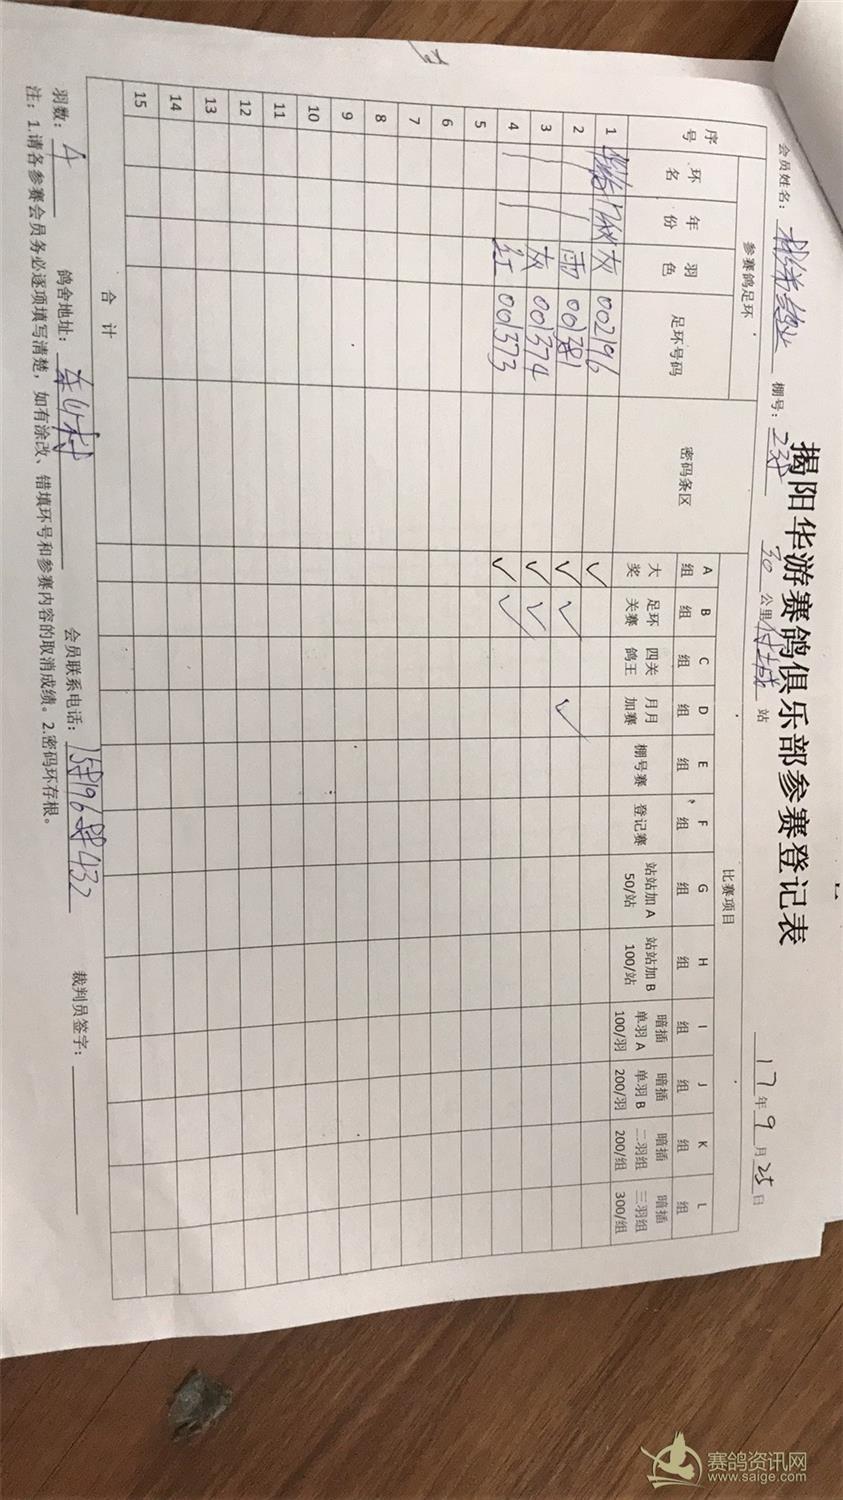 揭阳华游赛鸽俱乐部参赛登记表
会员姓名: 棚号: 237 30 公里 站 17 年 9 月 25 日
序号 参赛鸽足环 密码条区 比赛项目
环名 年份 羽色 足环号码 A组 B组 C组 D组 E组 F组 G组 H组 I组 J组 K组 L组
大奖 足环关赛 四关鸽王 月月加赛 棚号赛 登记赛 站站加A 50/站 站站加B 100/站 暗插单羽A 100/羽 暗插单羽B 200/羽 暗插二羽组 200/组 暗插三羽组 300/组
1 17秋 灰 002196 ✓
2 雨 001381 ✓ ✓ ✓
3 灰 001374 ✓ ✓
4 红 001373 ✓ ✓
5
6
7
8
9
10
11
12
13
14
15
合计
羽数: 4 鸽舍地址: 会员联系电话: 裁判员签字:
注: 1.请各参赛会员务必逐项填写清楚, 如有涂改、错填环号和参赛内容的取消成绩。2.密码环存根。
赛鸽资讯网
www.saige.com